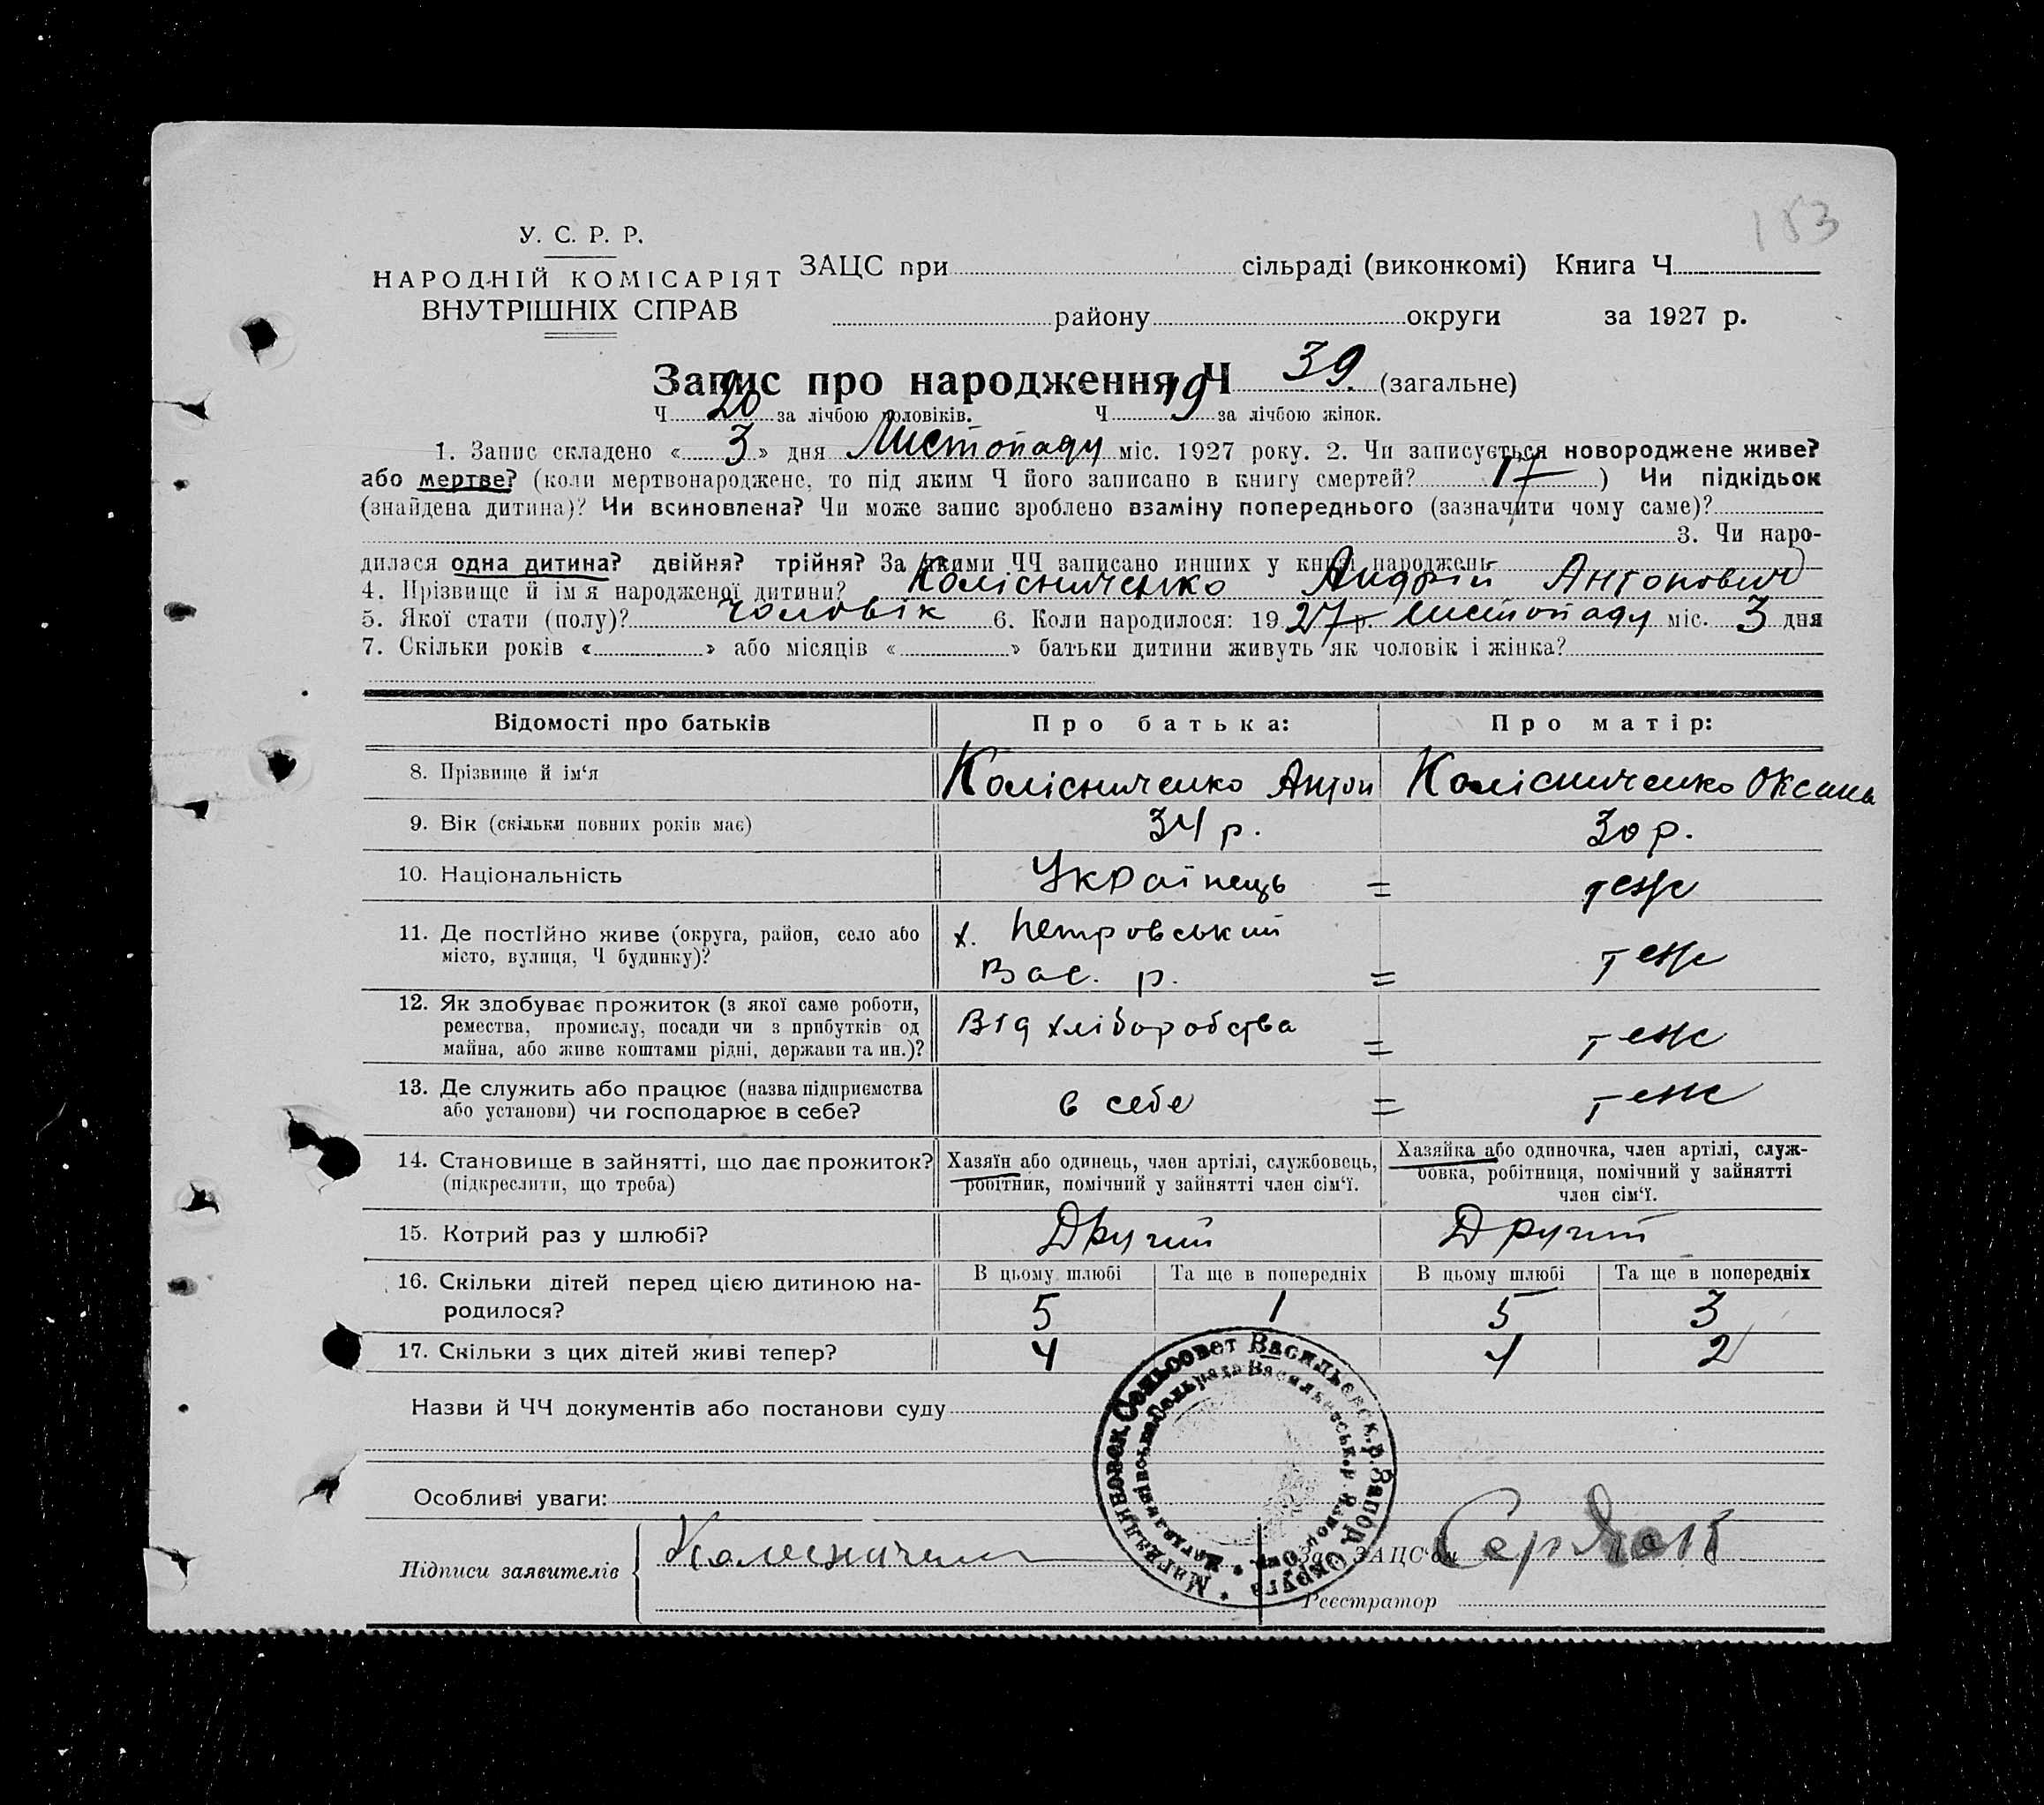 183
У. С. Р. Р.
НАРОДНІЙ КОМІСАРІЯТ
ВНУТРІШНІХ СПРАВ
ЗАЦС при сільраді (виконкомі) Книга Ч.
району округи за 1927 р.
Запис про народження Ч 39 (загальне)
Ч 20 за лічбою чоловіків. Ч 19 за лічбою жінок.
1. Запис складено « 3 » дня Листопаду міс. 1927 року. 2. Чи записується новороджене живе?
або мертве? (коли мертвонароджене, то під яким Ч його записано в книгу смертей? 17 ) Чи підкідьок
(знайдена дитина)? Чи всиновлена? Чи може запис зроблено взаміну попереднього (зазначити чому саме)?
3. Чи наро-
дилася одна дитина? двійня? трійня? За якими ЧЧ записано инших у книзі народжень
4. Прізвище й ім'я народженої дитини? Колісниченко Андрій Антонович
5. Якої стати (полу)? чоловік 6. Коли народилося: 1927 р. листопаду міс. 3 дня
7. Скільки років « » або місяців « » батьки дитини живуть як чоловік і жінка?
Відомості про батьків Про батька: Про матір:
8. Прізвище й ім'я Колісниченко Антон Колісниченко Оксана
9. Вік (скільки повних років має) 34 р. 30 р.
10. Національність Українець = теж
11. Де постійно живе (округа, район, село або х. Петровський
місто, вулиця, Ч будинку)? Вас. р. = теж
12. Як здобуває прожиток (з якої саме роботи,
ремества, промислу, посади чи з прибутків од Від хліборобства = теж
майна, або живе коштами рідні, держави та ин.)?
13. Де служить або працює (назва підприємства
або установи) чи господарює в себе? в себе = теж
14. Становище в зайнятті, що дає прожиток? Хазяїн або одинець, член артілі, службовець, Хазяйка або одиночка, член артілі, служ-
(підкреслити, що треба) робітник, помічний у зайнятті член сім'ї. бовка, робітниця, помічний у зайнятті
член сім'ї.
15. Котрий раз у шлюбі? Другий Другий
16. Скільки дітей перед цією дитиною на- В цьому шлюбі Та ще в попередніх В цьому шлюбі Та ще в попередніх
родилося? 5 1 5 3
17. Скільки з цих дітей живі тепер? 4 4 2
Назви й ЧЧ документів або постанови суду
Особливі уваги:
Підписи заявителів
Зав. ЗАЦС'ом Сердюк
Реєстратор
Сельсовет Васильевск. р. Запор. Округа